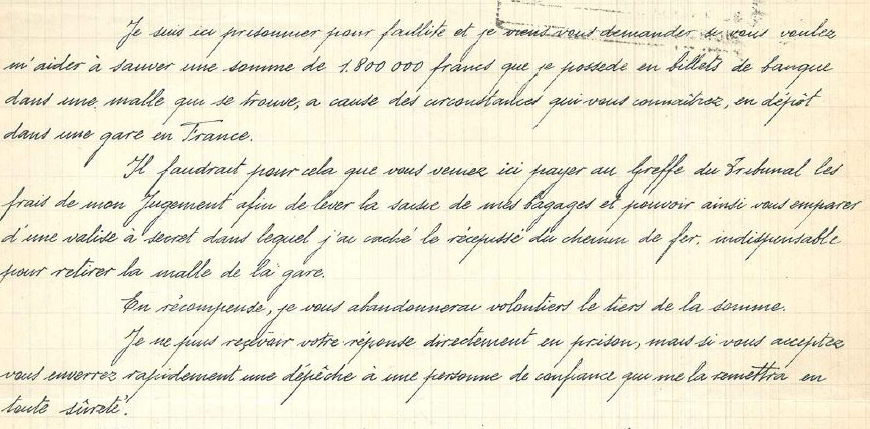 Je suis ici prisonnier pour faillite et je viens vous demander si vous voulez
m'aider à sauver une somme de 1.800 000 francs que je possède en billets de banque
dans une malle qui se trouve, a cause des circonstances qui vous connaîtrez, en dépôt
dans une gare en France.
Il faudrait pour cela que vous veniez ici payer au Greffe du Tribunal les
frais de mon Jugement afin de lever la saisie de mes bagages et pouvoir ainsi vous emparer
d'une valise à secret dans lequel j'ai caché le récépissé du chemin de fer, indispensable
pour retirer la malle de la gare.
En récompense, je vous abandonnerai volontiers le tiers de la somme.
Je ne puis reçevoir votre réponse directement en prison, mais si vous acceptez
vous enverrez rapidement une dépêche à une personne de confiance qui me la remettra en
toute sûreté.